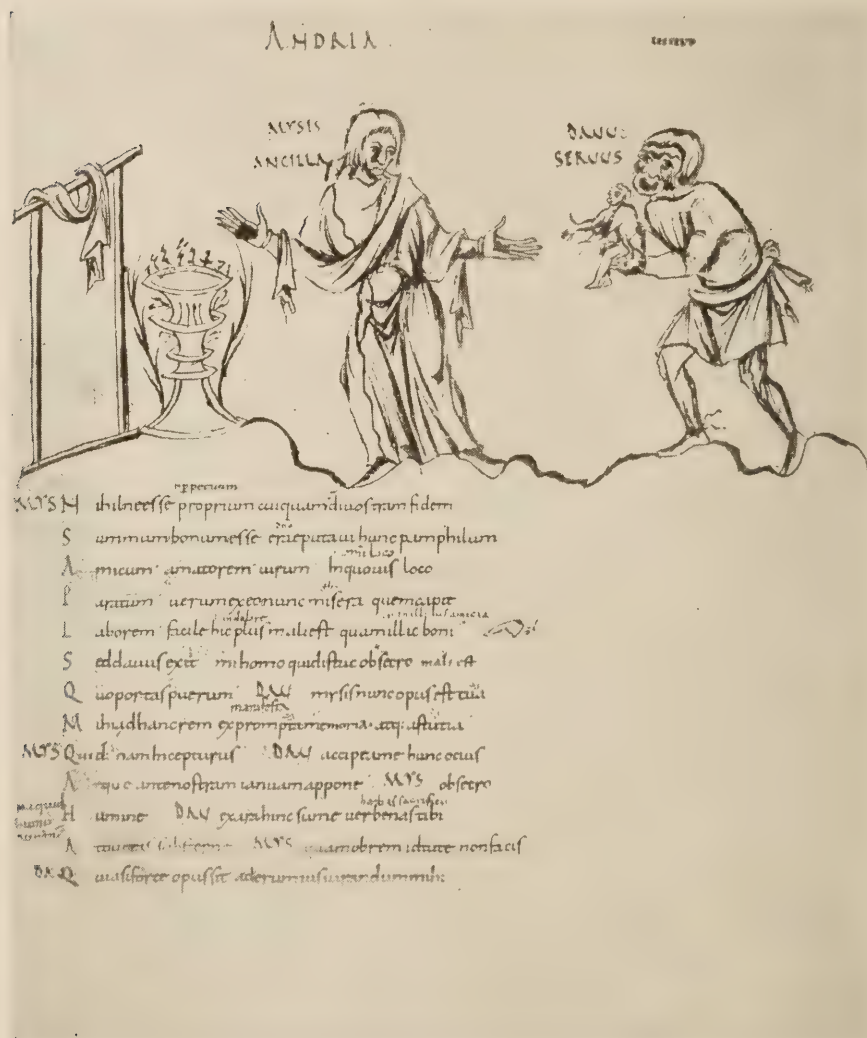 ANDRIA
MYSIS
ANCILLA
DAVUS
SERVUS
MYS Nihil ne esse proprium cuiquam di vostram fidem
Summum bonum esse erae putavi hunc pamphilum
Amicum amatorem virum inquovis loco
Paratum verum ex eo nunc misera quem capit
Laborem facile hic plus mali est quam illic boni
Sed davus exit mi homo quid istuc obsecro mali est
Quo portas puerum DAV mysis nunc opus est tua
Mihi ad hanc rem exprompta memoria atq; astutia
MYS Quid nam incepturus DAV accipe a me hunc ocius
Atque ante nostram ianuam appone MYS obsecro
Humine DAV ex ara hinc sume verbenas tibi
A MYS quamobrem id tute non facis
DA Quia si forte opus sit ad erum iusiurandum mihi